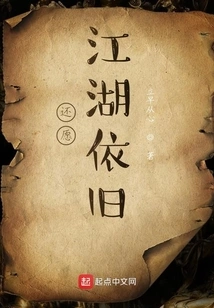 江湖依旧
还愿
著
起点中文网